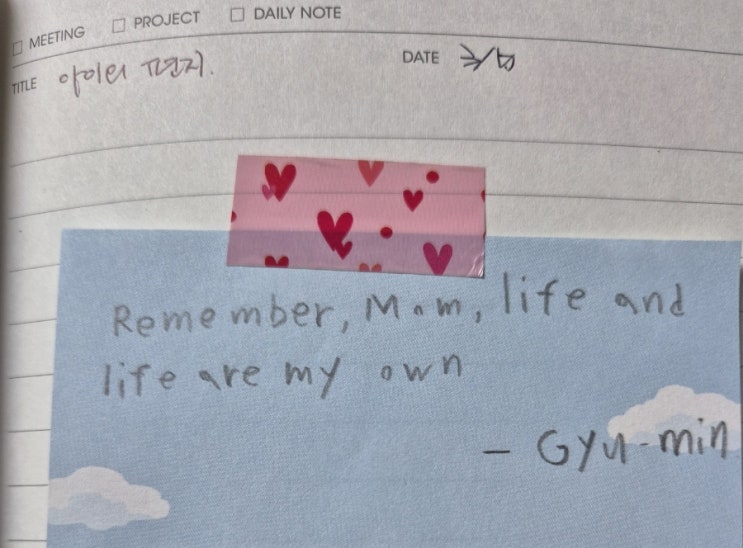 MEETING PROJECT DAILY NOTE
TITLE 아이의 편지. DATE
Remember, Mom, life and
life are my own
- Gyu-min